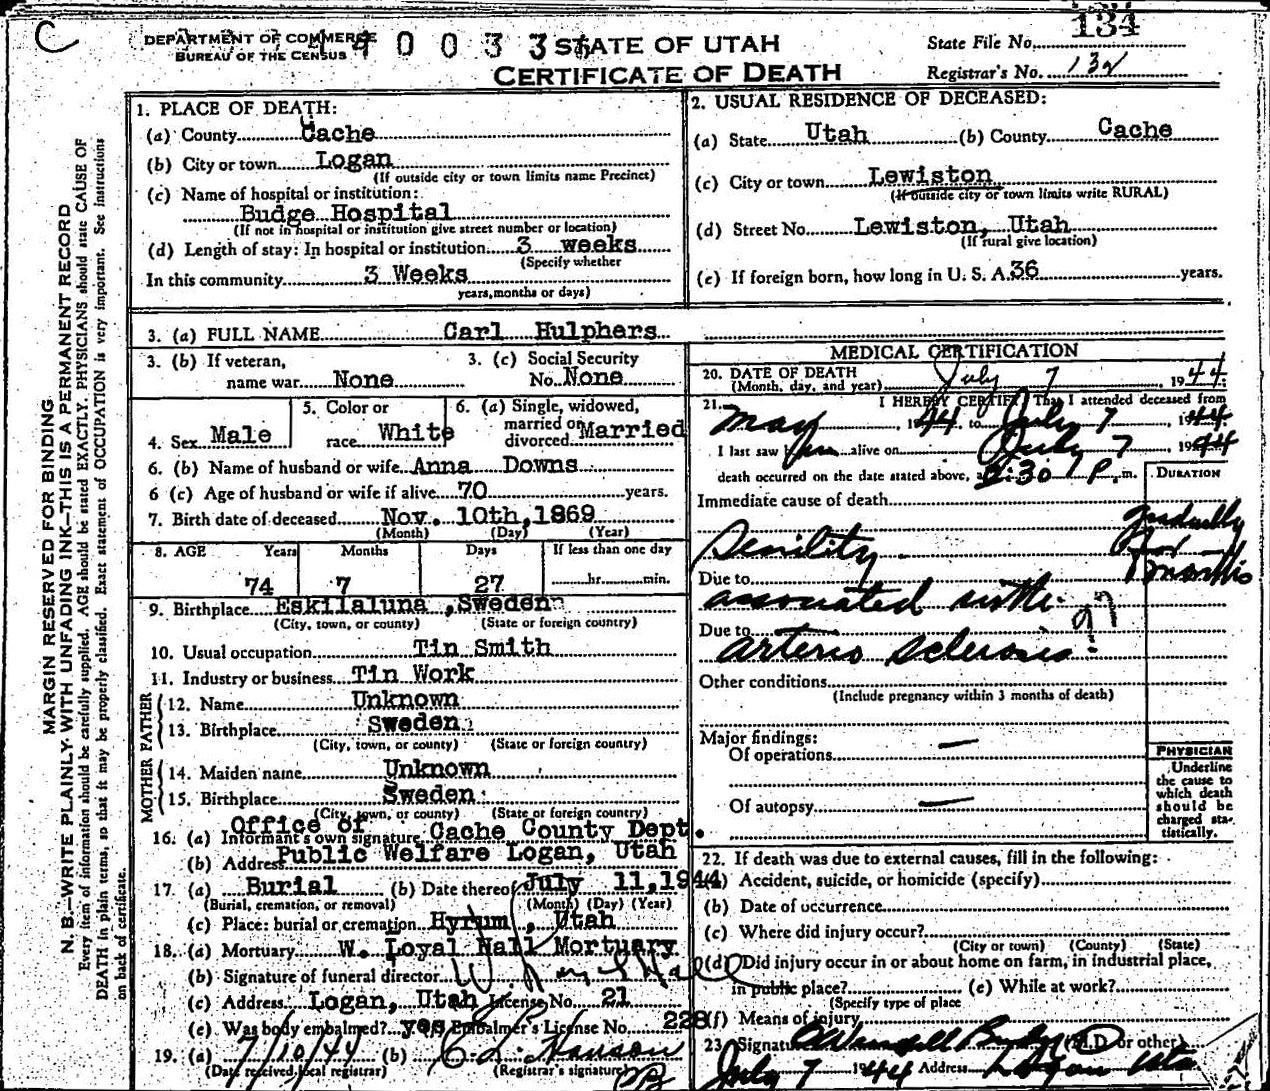 C
DEPARTMENT OF COMMERCE
BUREAU OF THE CENSUS
STATE OF UTAH
CERTIFICATE OF DEATH
134
State File No.
Registrar's No. 132
MARGIN RESERVED FOR BINDING
N. B.—WRITE PLAINLY WITH UNFADING INK—THIS IS A PERMANENT RECORD
Every item of information should be carefully supplied. AGE should be stated EXACTLY. PHYSICIANS should state CAUSE OF
DEATH in plain terms, so that it may be properly classified. Exact statement of OCCUPATION is very important. See instructions
on back of certificate.
1. PLACE OF DEATH:
(a) County Cache
(b) City or town Logan
(If outside city or town limits name Precinct)
(c) Name of hospital or institution:
Budge Hospital
(If not in hospital or institution give street number or location)
(d) Length of stay: In hospital or institution 3 weeks
(Specify whether
In this community 3 Weeks
years, months or days)
2. USUAL RESIDENCE OF DECEASED:
(a) State Utah (b) County Cache
(c) City or town Lewiston
(If outside city or town limits write RURAL)
(d) Street No. Lewiston, Utah
(If rural give location)
(e) If foreign born, how long in U. S. A. 36 years.
3. (a) FULL NAME Carl Hulphers
3. (b) If veteran, name war None
3. (c) Social Security No. None
4. Sex Male
5. Color or race White
6. (a) Single, widowed, married or divorced Married
6. (b) Name of husband or wife Anna Downs
6 (c) Age of husband or wife if alive 70 years.
7. Birth date of deceased Nov. 10th, 1869
(Month) (Day) (Year)
8. AGE Years Months Days If less than one day
74 7 27 hr. min.
9. Birthplace Eskilaluna, Sweden
(City, town, or county) (State or foreign country)
10. Usual occupation Tin Smith
11. Industry or business Tin Work
FATHER
12. Name Unknown
13. Birthplace Sweden
(City, town, or county) (State or foreign country)
MOTHER
14. Maiden name Unknown
15. Birthplace Sweden
(City, town, or county) (State or foreign country)
16. (a) Informant's own signature Office of Cache County Dept.
(b) Address Public Welfare Logan, Utah
17. (a) Burial (b) Date thereof July 11, 1944
(Burial, cremation, or removal) (Month) (Day) (Year)
(c) Place: burial or cremation Hyrum, Utah
18. (a) Mortuary W. Loyal Hall Mortuary
(b) Signature of funeral director W Loyal Hall
(c) Address Logan, Utah License No. 21
(e) Was body embalmed? yes Embalmer's License No. 228
19. (a) 7/10/44 (b) C. L. Hanson
(Date received local registrar) (Registrar's signature)
MEDICAL CERTIFICATION
20. DATE OF DEATH
(Month, day, and year) July 7, 1944
21. I HEREBY CERTIFY That I attended deceased from
May, 1944 to July 7, 1944
I last saw him alive on July 7 1944
death occurred on the date stated above, 2:30 P. m.
DURATION
Immediate cause of death
gradually
Senility for months
Due to
associated with
Due to 97
arterio sclerosis
Other conditions
(Include pregnancy within 3 months of death)
Major findings:
Of operations —
Of autopsy —
PHYSICIAN
Underline
the cause to
which death
should be
charged sta-
tistically.
22. If death was due to external causes, fill in the following:
(a) Accident, suicide, or homicide (specify)
(b) Date of occurrence
(c) Where did injury occur?
(City or town) (County) (State)
(d) Did injury occur in or about home on farm, in industrial place,
in public place? (e) While at work?
(Specify type of place
(f) Means of injury
23. Signature Budge (M.D. or other)
July 7 1944 Address Logan Uta